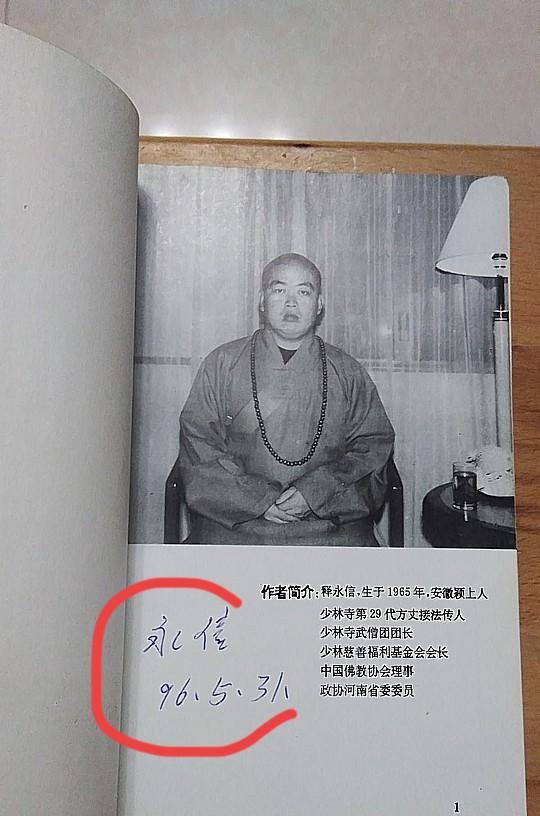 作者简介：释永信，生于1965年，安徽颍上人
少林寺第29代方丈接法传人
少林寺武僧团团长
少林慈善福利基金会会长
中国佛教协会理事
政协河南省委委员
永信
96、5、31、
1